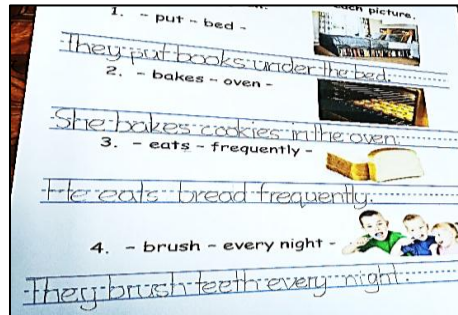 each picture.
1. - put - bed -
They put books under the bed.
2. - bakes - oven -
She bakes cookies in the oven.
3. - eats - frequently -
He eats bread frequently.
4. - brush - every night -
They brush teeth every night.